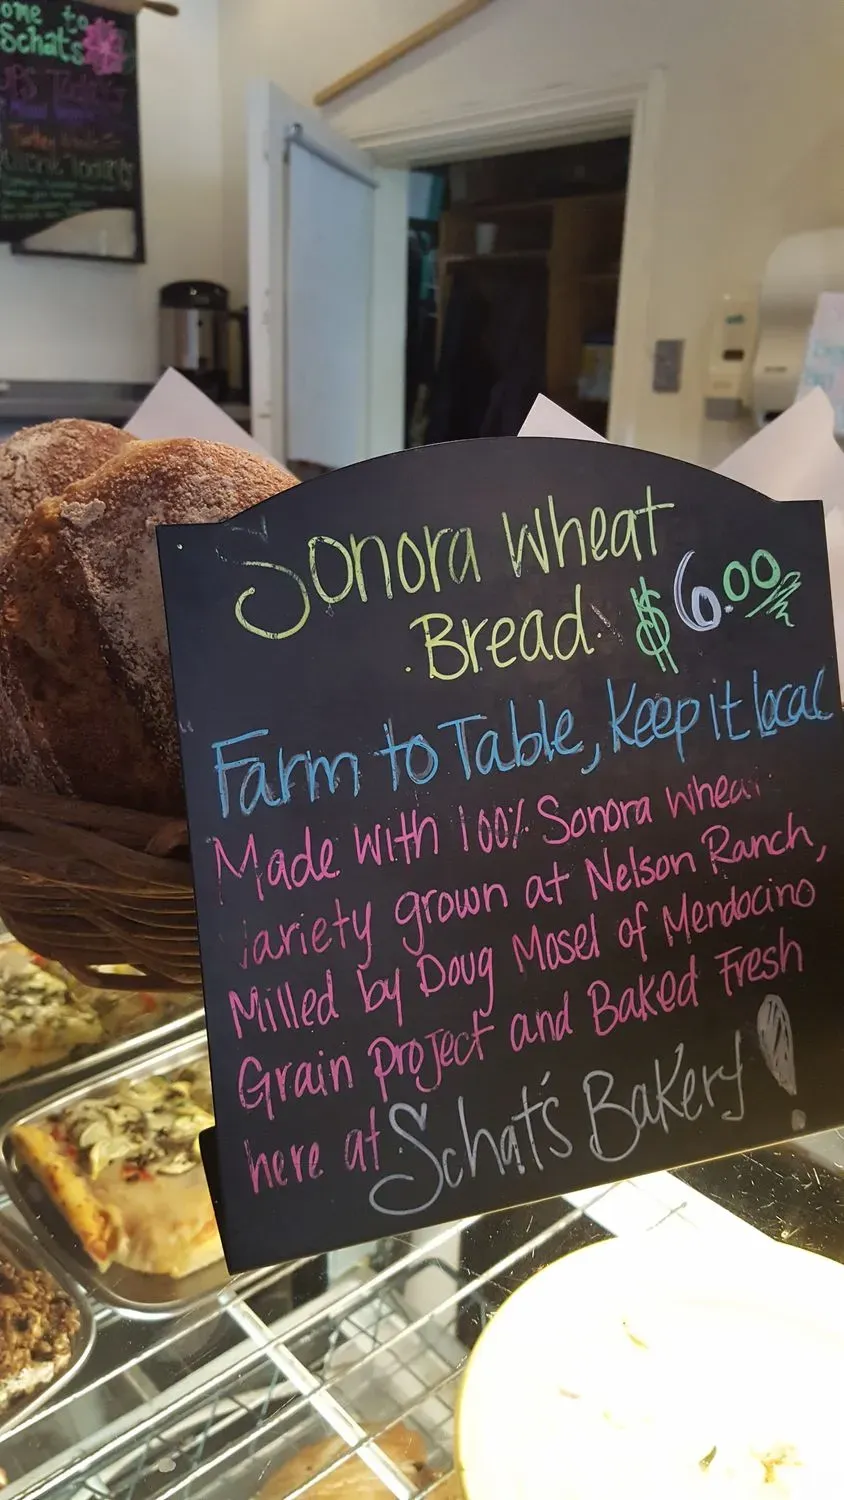 ome to
Schat's
Sonora Wheat
Bread $6.00
Farm to Table, Keep it local
Made with 100% Sonora Wheat
variety grown at Nelson Ranch,
Milled by Doug Mosel of Mendocino
Grain Project and Baked Fresh
here at Schat's Bakery!